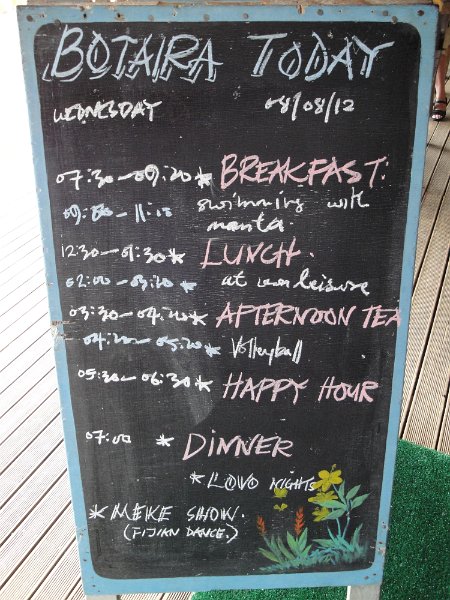 BOTAIRA TODAY
WEDNESDAY 08/08/12
07:30-09:20 * BREAKFAST.
swimming with
manta.
12:30-01:30 * LUNCH.
02:00-03:20 * at leisure
03:30-04:20 * AFTERNOON TEA
04:20-05:20 * Volleyball
05:30-06:30 * HAPPY HOUR
07:00 * DINNER
* LOVO NIGHTS
* MEKE SHOW.
(FIJIAN DANCE.)